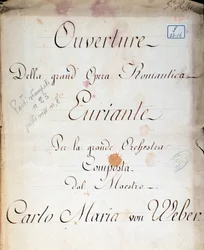 Ouverture
Della grand Opera Romantica
Euriante
Per la grande Orchestra
Composta
Dal Maestro
Carlo Maria von Weber